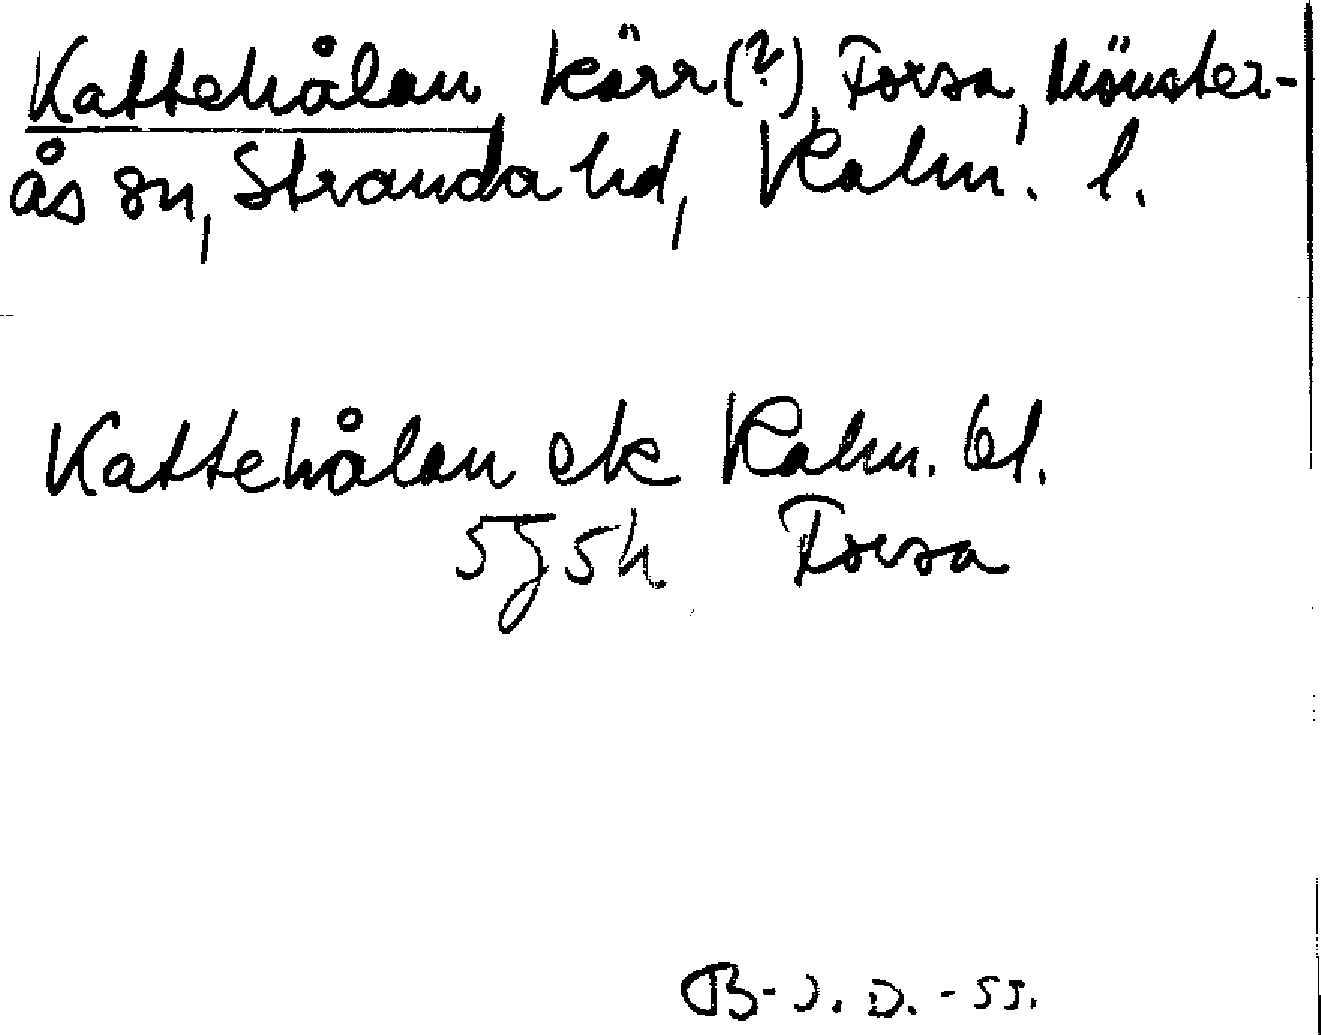 Kattehålan, kärr(?), Forsa, Mönster-
ås sn, Stranda hd, Kalm. l.
Kattehålan ek Kalm. bl.
5g5h Forsa
B-J. D. - 55.